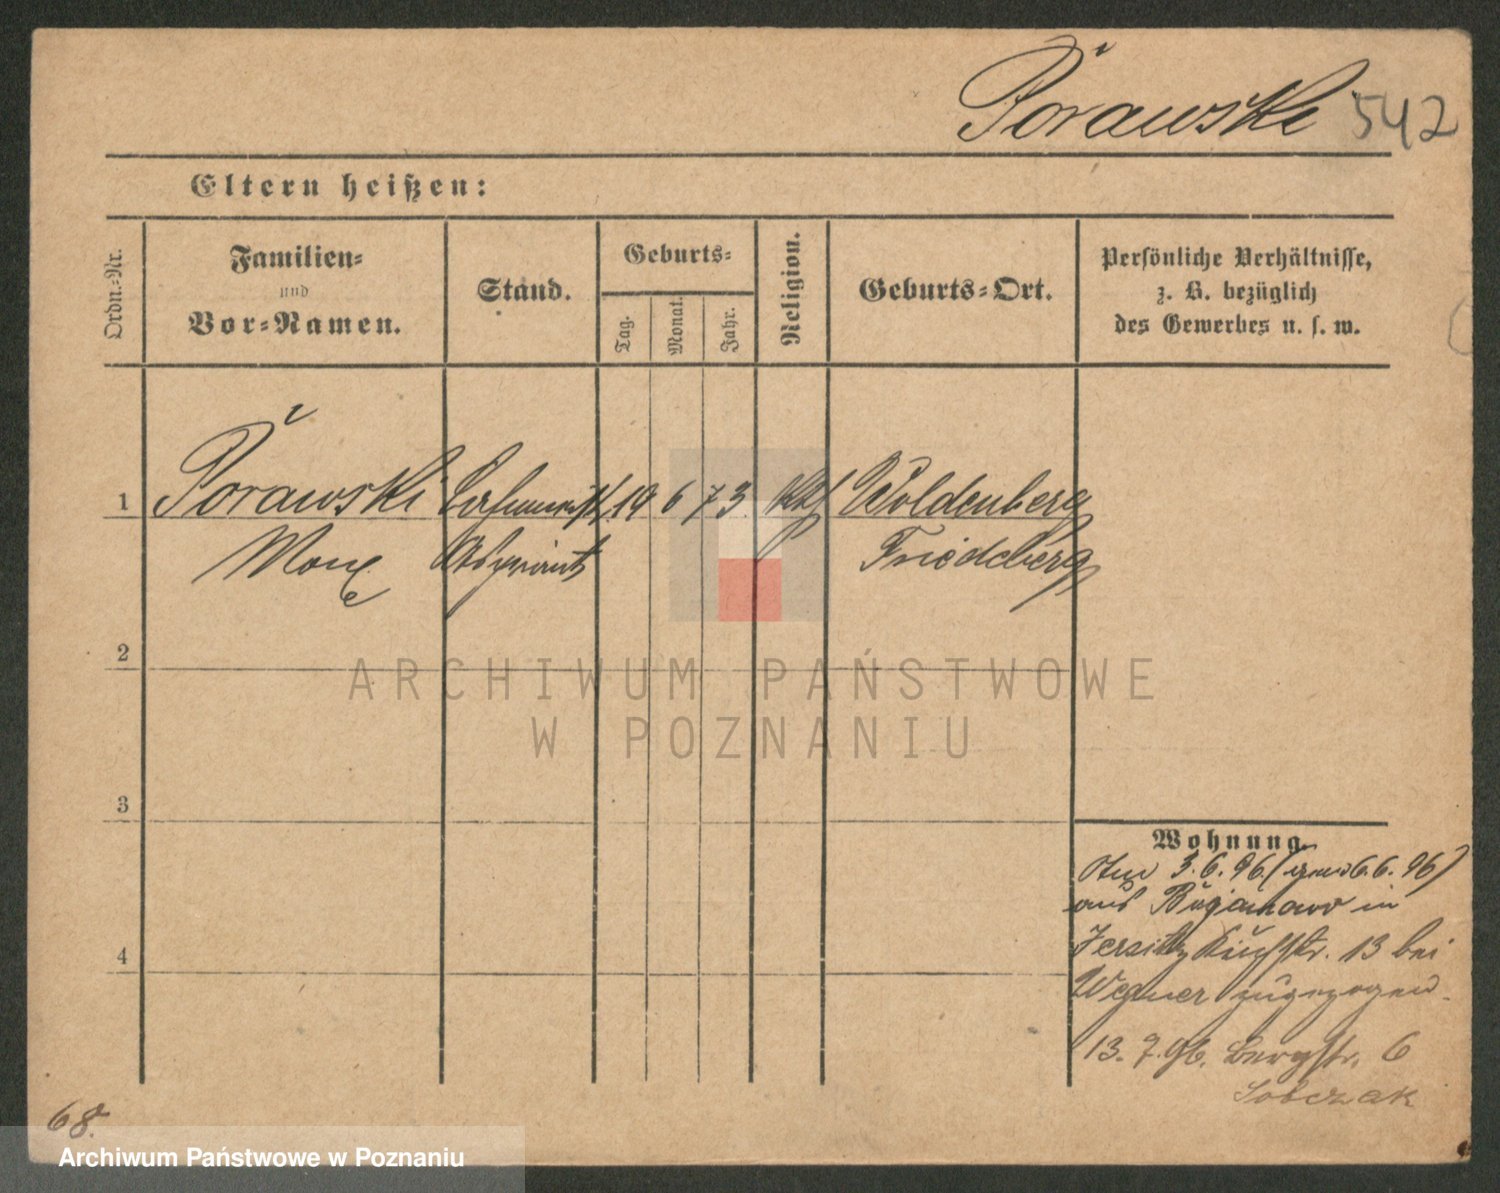 Porawski 542
Eltern heißen:
Ordn.-Nr.
Familien-
und
Vor-Namen.
Stand.
Geburts-
Tag.
Monat.
Jahr.
Religion.
Geburts-Ort.
Persönliche Verhältnisse,
z. B. bezüglich
des Gewerbes u. s. w.
1 Porawski 19 6 73 kth Woldenberg
Max Friedeberg
2
3
4
Wohnung.
3.6.96. 6.6.96)
aus in
Jersitz Kirchstr. 13 bei
Wegner zugezogen.
13. 7. 96. Bergstr. 6
Sobczak
68.
ARCHIWUM PAŃSTWOWE
W POZNANIU
Archiwum Państwowe w Poznaniu